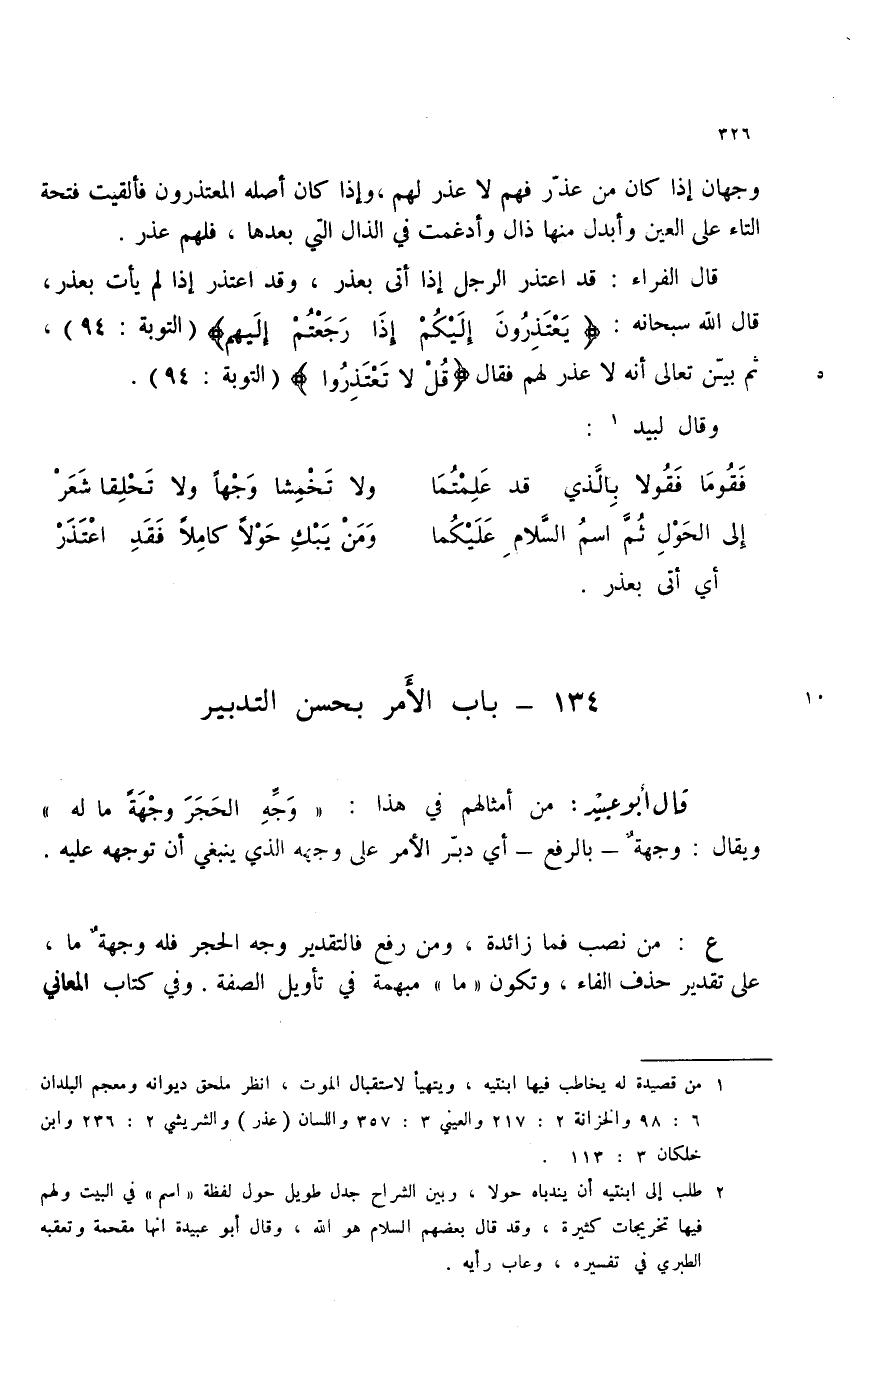 ٣٢٦
وجهان إذا كان من عذّر فهم لا عذر لهم ،وإذا كان أصله المعتذرون فألقيت فتحة
التاء على العين وأبدل منها ذال وأدغمت في الذال التي بعدها ، فلهم عذر .
قال الفراء : قد اعتذر الرجل إذا أتى بعذر ، وقد اعتذر إذا لم يأت بعذر،
قال الله سبحانه : ﴿ يَعْتَذِرُونَ إِلَيْكُمْ إِذَا رَجَعْتُمْ إِلَيهم﴾ (التوبة : ٩٤) ،
ثم بيّن تعالى أنه لا عذر لهم فقال ﴿قُلْ لا تَعْتَذِرُوا ﴾ (التوبة : ٩٤) . ٥
وقال لبيد ١ :
فَقُومَا فَقُولا بِالَّذي قد عَلِمْتُمَا ولا تَخْمِشا وَجْهاً ولا تَحْلِقا شَعَرْ
إلى الحَوْلِ ثُمَّ اسمُ السَّلامِ عَلَيْكُما وَمَنْ يَبْكِ حَوْلاً كامِلاً فَقَدِ اعْتَذَرْ
أي أتى بعذر .
١٣٤ – باب الأَمر بحسن التدبير ١٠
قال أبو عبيد : من أمثالهم في هذا : « وَجِّهِ الحَجَرَ وجْهَةً ما له »
ويقال : وجهةٌ – بالرفع – أي دبّر الأمر على وجهه الذي ينبغي أن توجهه عليه .
ع : من نصب فما زائدة ، ومن رفع فالتقدير وجه الحجر فله وجهةٌ ما ،
على تقدير حذف الفاء ، وتكون « ما » مبهمة في تأويل الصفة . وفي كتاب المعاني
١ من قصيدة له يخاطب فيها ابنتيه ، ويتهيأ لاستقبال الموت ، انظر ملحق ديوانه ومعجم البلدان
٦ : ٩٨ والخزانة ٢ : ٢١٧ والعيني ٣ : ٣٥٧ واللسان ( عذر ) والشريشي ٢ : ٢٣٦ وابن
خلكان ٣ : ١١٣ .
٢ طلب إلى ابنتيه أن يندباه حولا ، وبين الشراح جدل طويل حول لفظة « اسم » في البيت ولهم
فيها تخريجات كثيرة ، وقد قال بعضهم السلام هو الله ، وقال أبو عبيدة انها مقحمة وتعقبه
الطبري في تفسيره ، وعاب رأيه .